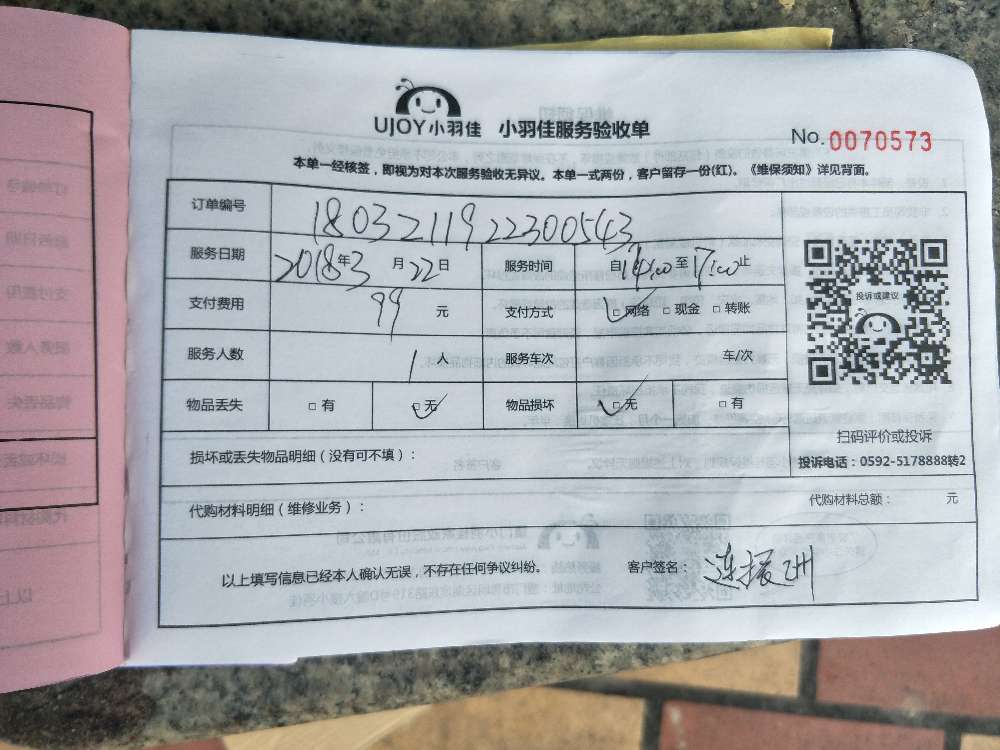 UJOY小羽佳 小羽佳服务验收单
No. 0070573
本单一经核签，即视为对本次服务验收无异议。本单一式两份，客户留存一份(红)。《维保须知》详见背面。
订单编号 18032119222300543
服务日期 2018年3月22日 服务时间 自14:00至17:00止
支付费用 99 元 支付方式 □网络 □现金 □转账
服务人数 1人 服务车次 车/次
物品丢失 □有 □无 物品损坏 □无 □有
投诉或建议
扫码评价或投诉
投诉电话：0592-5178888转2
损坏或丢失物品明细（没有可不填）：
代购材料明细（维修业务）： 代购材料总额： 元
以上填写信息已经本人确认无误，不存在任何争议纠纷。 客户签名：连振洲